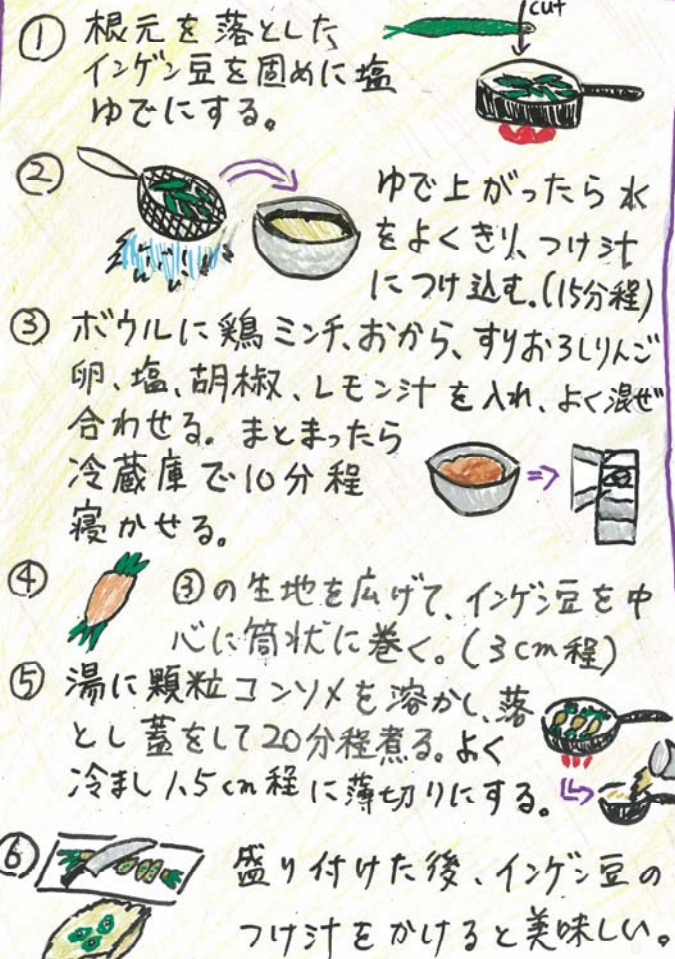 cut
① 根元を落とした
インゲン豆を固めに塩
ゆでにする。
② ゆで上がったら水
をよくきり、つけ汁
につけ込む。(15分程)
③ ボウルに鶏ミンチ、おから、すりおろしりんご
卵、塩、胡椒、レモン汁を入れ、よく混ぜ
合わせる。まとまったら
冷蔵庫で10分程
寝かせる。
④ ③の生地を広げて、インゲン豆を中
心に筒状に巻く。(3cm程)
⑤ 湯に顆粒コンソメを溶かし、落
とし蓋をして20分程煮る。よく
冷まし1.5cm程に薄切りにする。
⑥ 盛り付けた後、インゲン豆の
つけ汁をかけると美味しい。